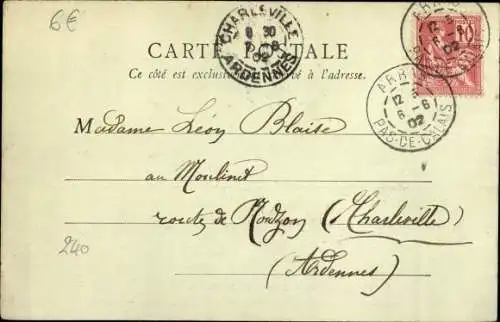 6€
CHARLEVILLE
8 30
7 - 6
02
ARDENNES
ARR
12
6 -
02
10
CARTE POSTALE
Ce côté est exclusivement réservé à l'adresse.
ARR
12
6 - 6
02
PAS-DE-CALAIS
Madame Léon Blaise
au Moulinet
route de (Charleville)
240
(Ardennes)